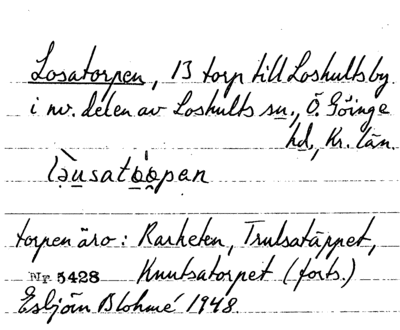 Losatorpen, 13 torp till Loshults by
i nv. delen av Loshults sn., Ö. Göinge
hd., Kr. län.
torpen äro: Rarketen, Trulsatäppet,
Nr 5428 Knutsatorpet (forts.)
Esbjörn Blohmé 1948.